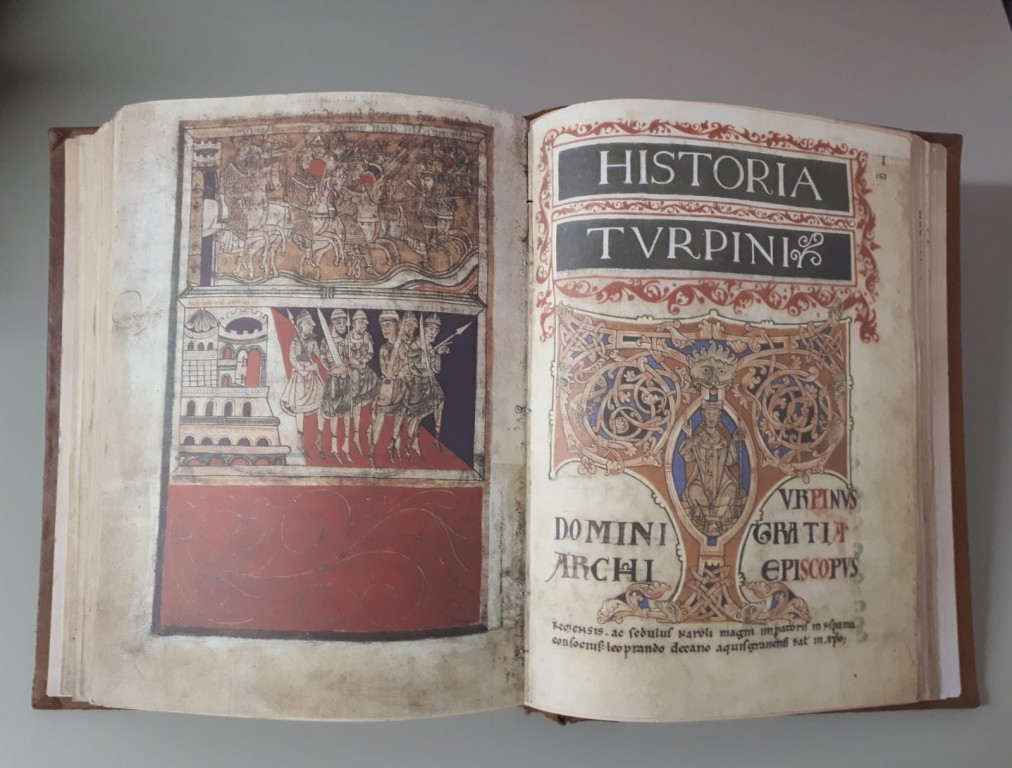 I
163
HISTORIA
TVRPINI
VRPINVS
DOMINI GRATIA
ARCHI EPISCOPVS
REMENSIS. ac sedulus Karoli magni impatoris in
consocius: leoprando decano aquisgranensi sat in xpo;